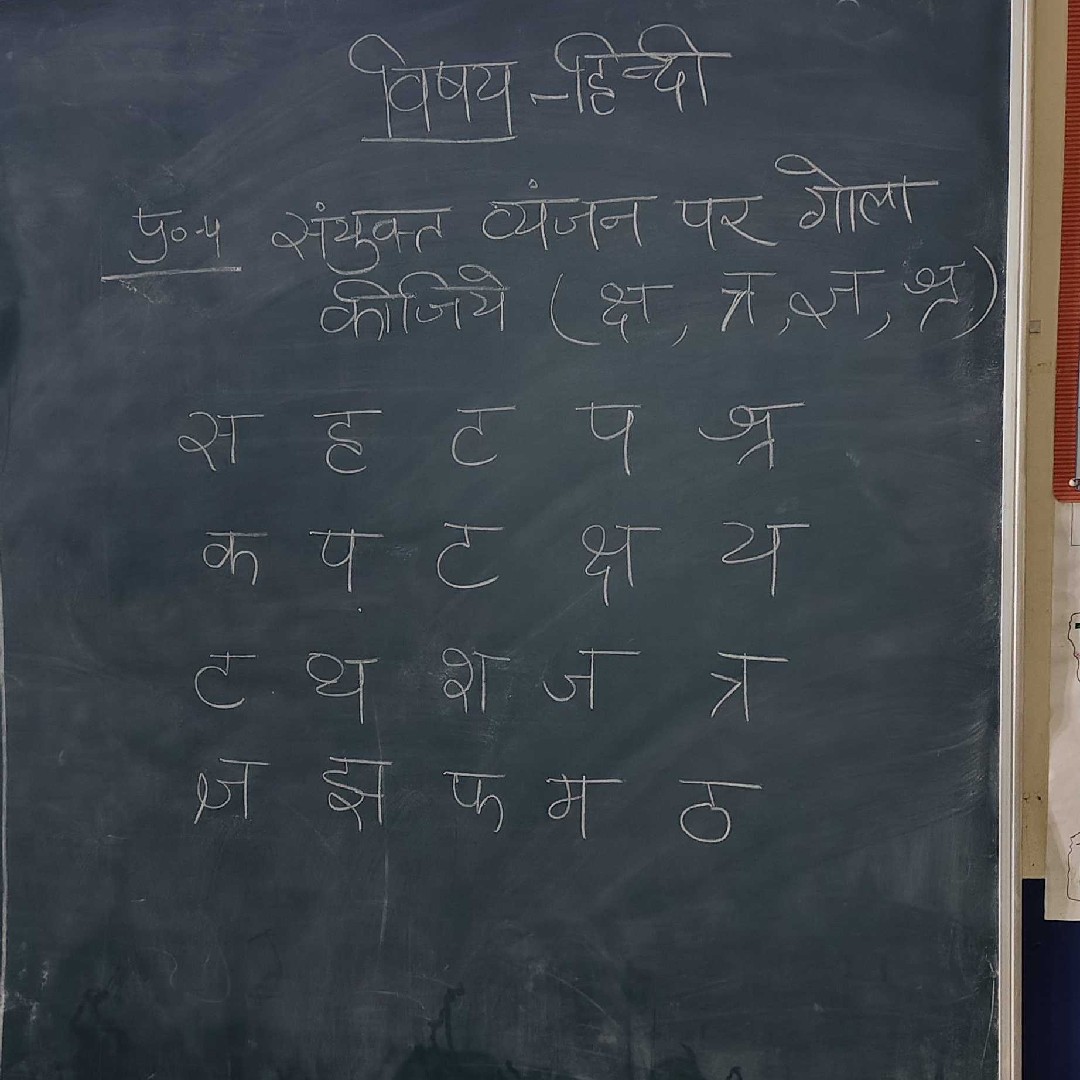 विषय - हिन्दी
प्र०-५ संयुक्त व्यंजन पर गोला
कीजिये (क्ष, त्र, ज्ञ, श्र)
स ह ट प श्र
क प ट क्ष य
ट थ श ज त्र
ज्ञ झ फ म ठ